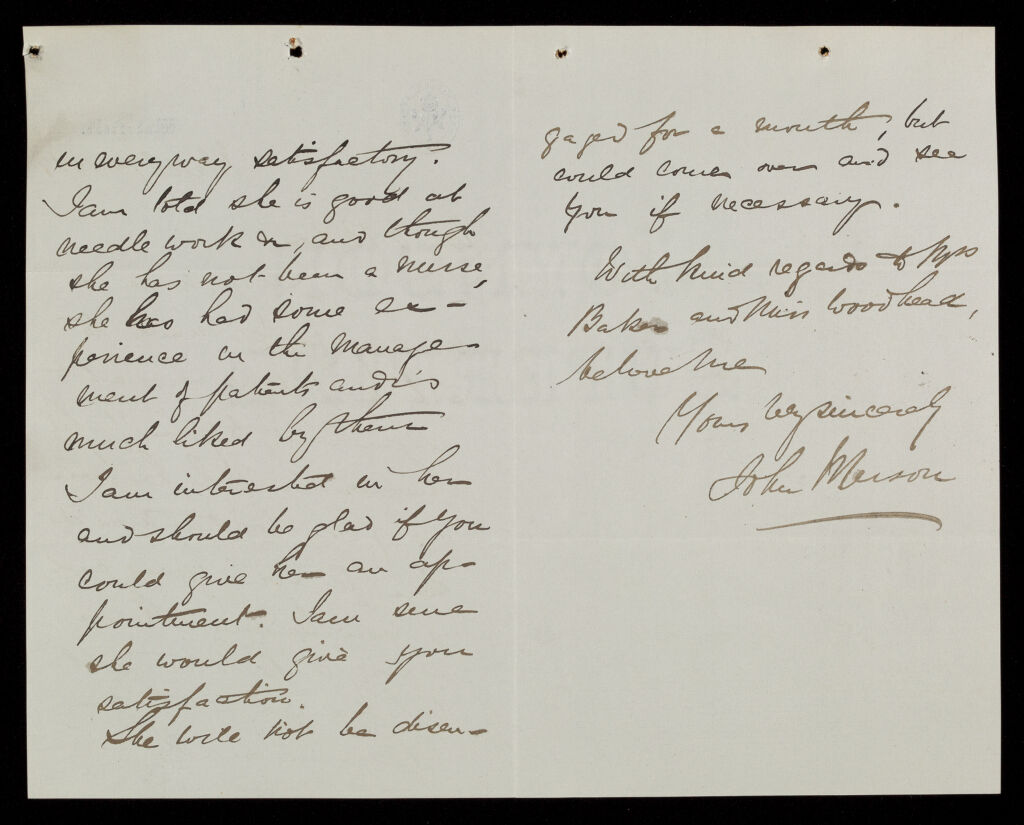 in every way satisfactory.
I am told she is good at
needle work &c, and though
she has not been a nurse,
she has had some ex-
perience in the manage-
ment of patients and is
much liked by them
I am interested in her
and should be glad if you
could give her an ap-
pointment. I am sure
she would give you
satisfaction.
She will not be disen-
gaged for a month, but
could come over and see
you if necessary.
With kind regards to Mrs
Baker and Miss Woodhead,
believe me
Yours very sincerely
John Merson